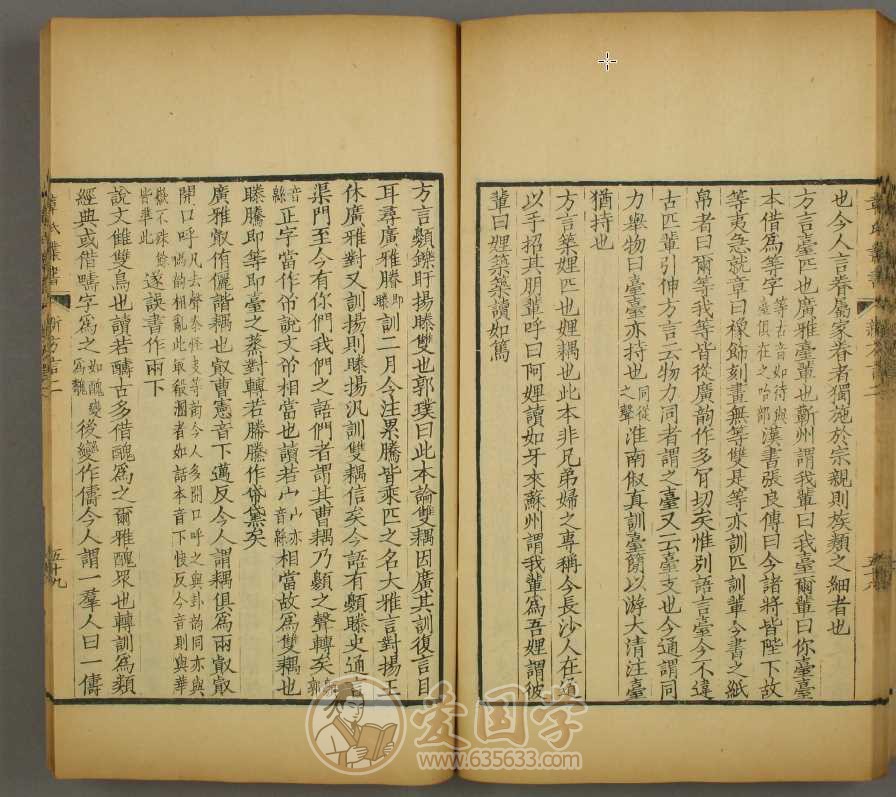 也今人言眷屬家眷者獨施於宗親則族類之細者也
方言臺匹也廣雅臺輩也蘄州謂我輩曰我臺爾輩曰你臺臺
本借爲等字等古音如待與臺俱在之咍部漢書張良傳曰今諸將皆陛下故
等夷急就章曰橡飾刻畫無等雙是等亦訓匹訓輩今書之紙
帛者曰爾等我等皆從廣韵作多肎切矣惟別語言臺今不違
古匹輩引伸方言云物力同者謂之臺又云臺支也今通謂同
力舉物曰臺臺亦持也同從之聲淮南俶真訓臺簡以游大清注臺
猶持也
方言築娌匹也娌耦也此本非兄弟婦之專稱今長沙人在通
以手招其朋輩呼曰阿娌讀如牙來蘇州謂我輩爲吾娌謂彼
輩曰娌築築讀如篤
方言顟鑠盱揚䠮雙也郭璞曰此本論雙耦因廣其訓復言目
耳尋廣雅䲢即䠮訓二月令注累騰皆乘匹之名大雅言對揚王
休廣雅對又訓揚則䠮揚汎訓雙耦信矣今語有顟䠮史通言
渠門至今有你們我們之語們者謂其曹耦乃顟之聲轉矣
正字當作㒼說文㒼相當也讀若宀宀亦音緜相當故爲雙耦也
䠮騰即等即臺之蒸對轉若勝騰作黱黛矣
廣雅㕡侑儷諧耦也㕡曹憲音下邁反今人謂耦俱爲兩㕡㕡
開口呼凡去聲泰怪夬等韵今人多開口呼之與卦韵同亦與
禡韵相亂此㕡殺溷者如話本音下快反今音則與華
皆華此遂誤書作兩下
說文雔雙鳥也讀若醻古多借醜爲之爾雅醜衆也轉訓爲類
經典或借疇字爲之如醜變爲魗後變作儔今人謂一羣人曰一儔
新方言二
五十九
爱国学
www.635633.com